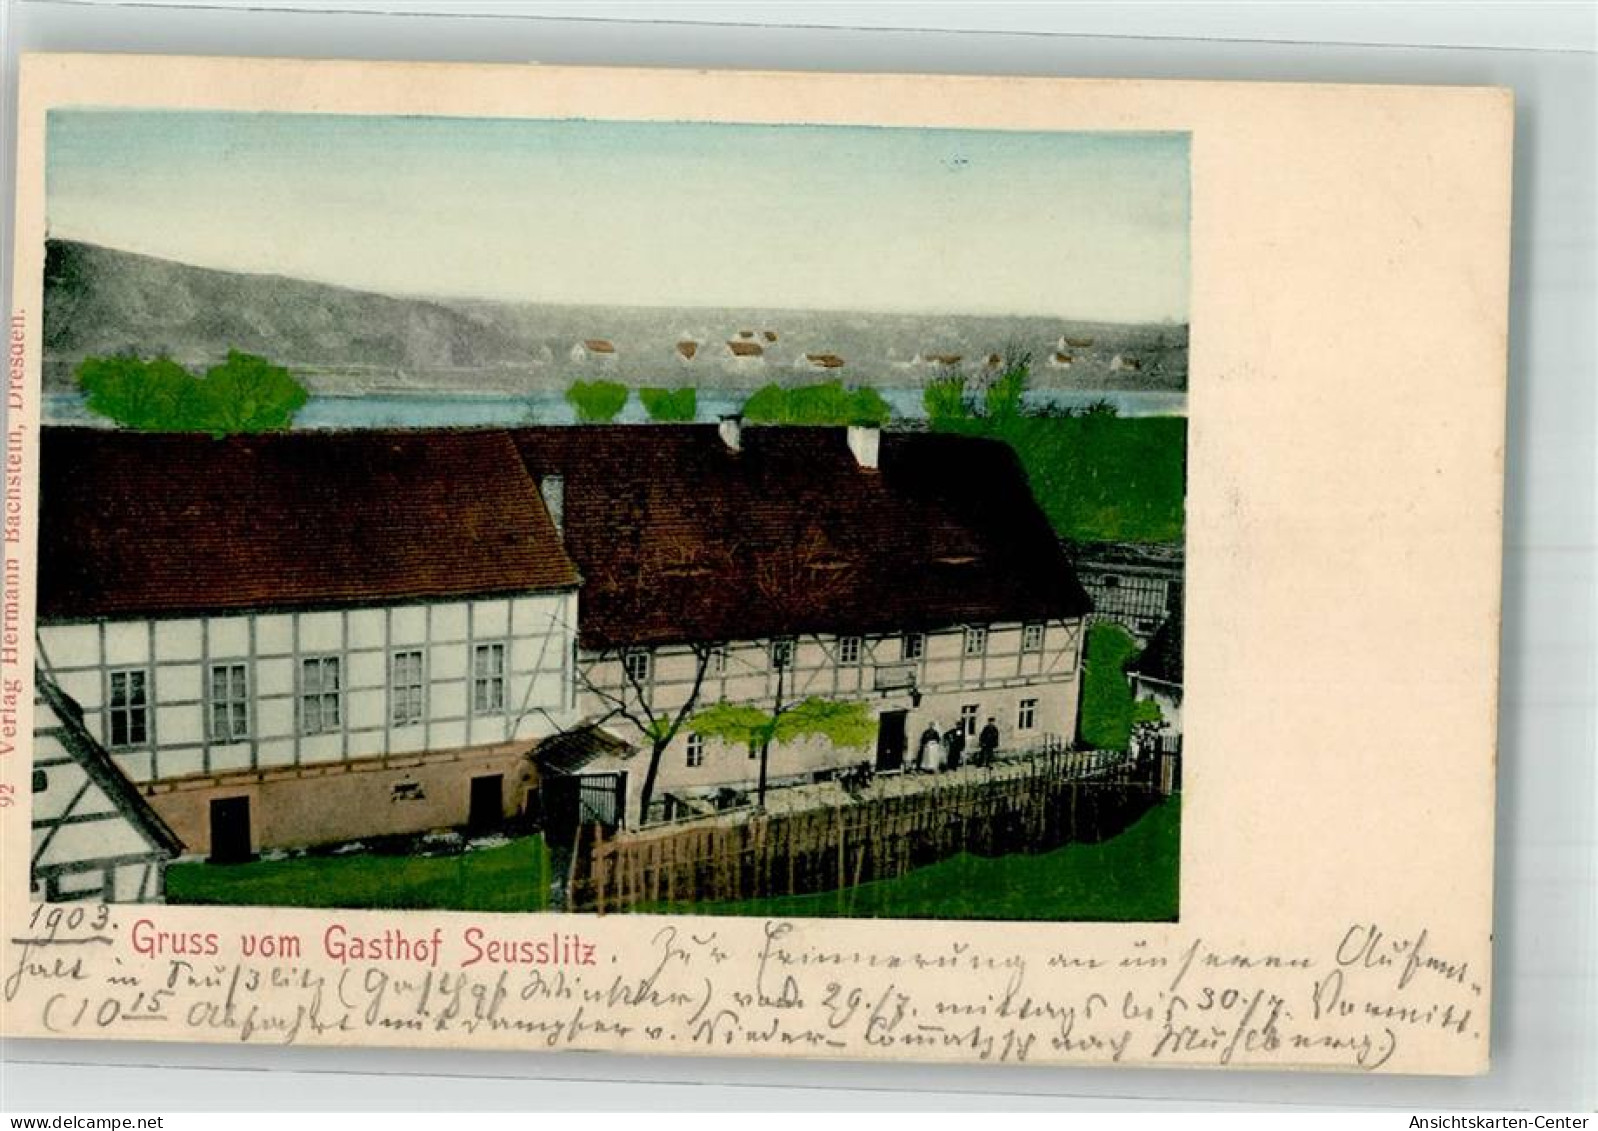 92 Verlag Hermann Bachstein, Dresden.
1903.
Gruss vom Gasthof Seusslitz. Zur Erinnerung an unseren Aufent-
halt in Seußlitz (Gasthof Winkler) vom 29./7. mittags bis 30./7. Vormitt.
(10 15 Abfahrt mit Dampfer v. Nieder-Lommatzsch nach Mühlberg.)
Ansichtskarten-Center